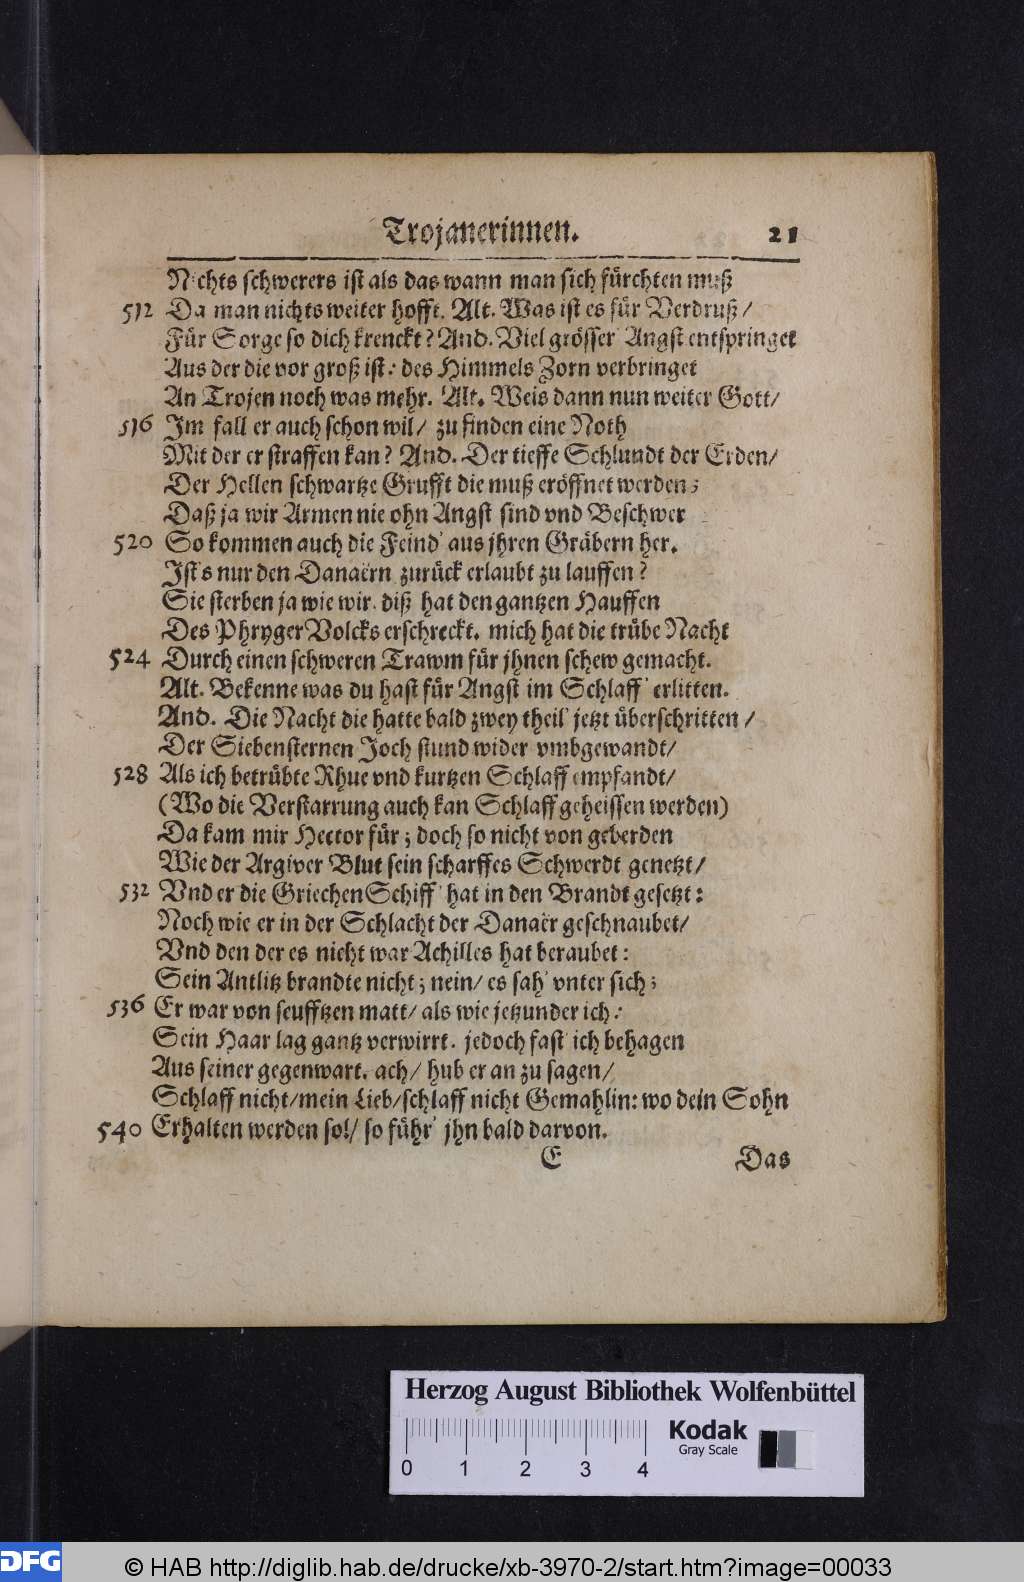 Trojanerinnen. 21
Nichts schwerers ist als das wann man sich fürchten muß
512 Da man nichts weiter hofft. Alt. Was ist es für Verdruß /
Für Sorge so dich krenckt? And. Viel grösser' Angst entspringet
Aus der die vor groß ist: des Himmels Zorn verbringet
An Trojen noch was mehr. Alt. Weis dann nun weiter Gott /
516 Im fall er auch schon wil / zu finden eine Noth
Mit der er straffen kan? And. Der tieffe Schlundt der Erden /
Der Hellen schwartze Grufft die muß eröffnet werden;
Daß ja wir Armen nie ohn Angst sind vnd Beschwer
520 So kommen auch die Feind' aus jhren Gräbern her.
Ist's nur den Danaërn zurück erlaubt zu lauffen?
Sie sterben ja wie wir. diß hat den gantzen Hauffen
Des Phryger Volcks erschreckt. mich hat die trübe Nacht
524 Durch einen schweren Trawm für jhnen schew gemacht.
Alt. Bekenne was du hast für Angst im Schlaff' erlitten.
And. Die Nacht die hatte bald zwey theil' jetzt überschritten /
Der Siebensternen Joch stund wider vmbgewandt /
528 Als ich betrübte Rhue vnd kurtzen Schlaff empfandt /
(Wo die Verstarrung auch kan Schlaff geheissen werden)
Da kam mir Hector für; doch so nicht von geberden
Wie der Argiver Blut sein scharffes Schwerdt genetzt /
532 Vnd er die Griechen Schiff' hat in den Brandt gesetzt:
Noch wie er in der Schlacht der Danaër geschnaubet /
Vnd den der es nicht war Achilles hat beraubet:
Sein Antlitz brandte nicht; nein / es sah' vnter sich;
536 Er war von seufftzen matt / als wie jetzunder ich:
Sein Haar lag gantz verwirrt. jedoch fast' ich behagen
Aus seiner gegenwart. ach / hub er an zu sagen /
Schlaff nicht / mein Lieb / schlaff nicht Gemahlin: wo dein Sohn
540 Erhalten werden sol / so führ' jhn bald darvon.
E Das
Herzog August Bibliothek Wolfenbüttel
0 1 2 3 4
Kodak
Gray Scale
DFG
© HAB http://diglib.hab.de/drucke/xb-3970-2/start.htm?image=00033